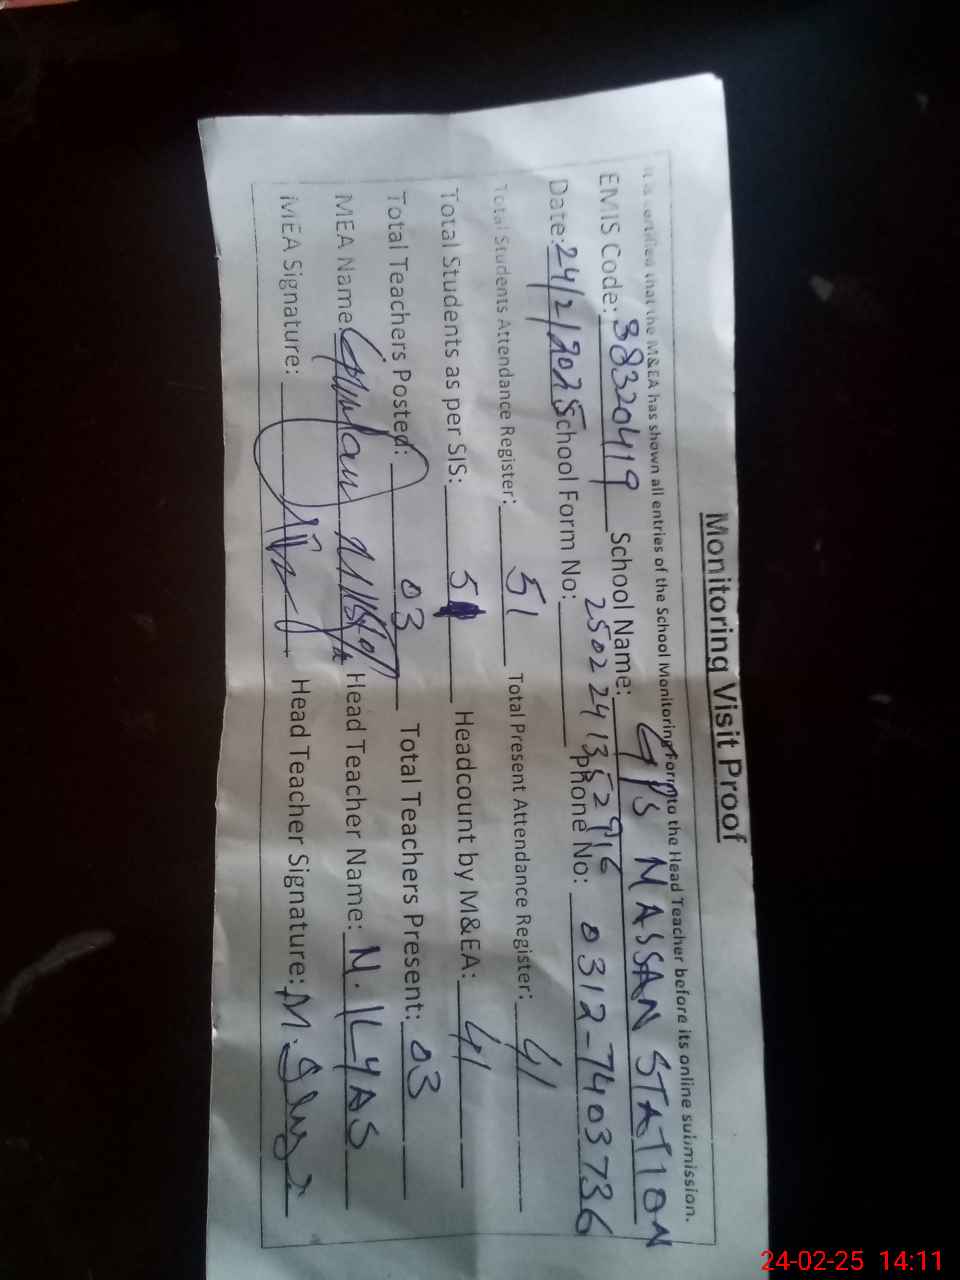 Monitoring Visit Proof
It is certified that the M&EA has shown all entries of the School Monitoring Form to the Head Teacher before its online submission.
EMIS Code: 38320419 School Name: GPS MASSAN STATION
Date: 24/2/2025 School Form No: 2502241352916 Phone No: 0312-7403736
Total Students Attendance Register: 51 Total Present Attendance Register: 41
Total Students as per SIS: 5 Headcount by M&EA: 41
Total Teachers Posted: 03 Total Teachers Present: 03
MEA Name: Head Teacher Name: M. ILYAS
MEA Signature: Head Teacher Signature: M.
24-02-25 14:11